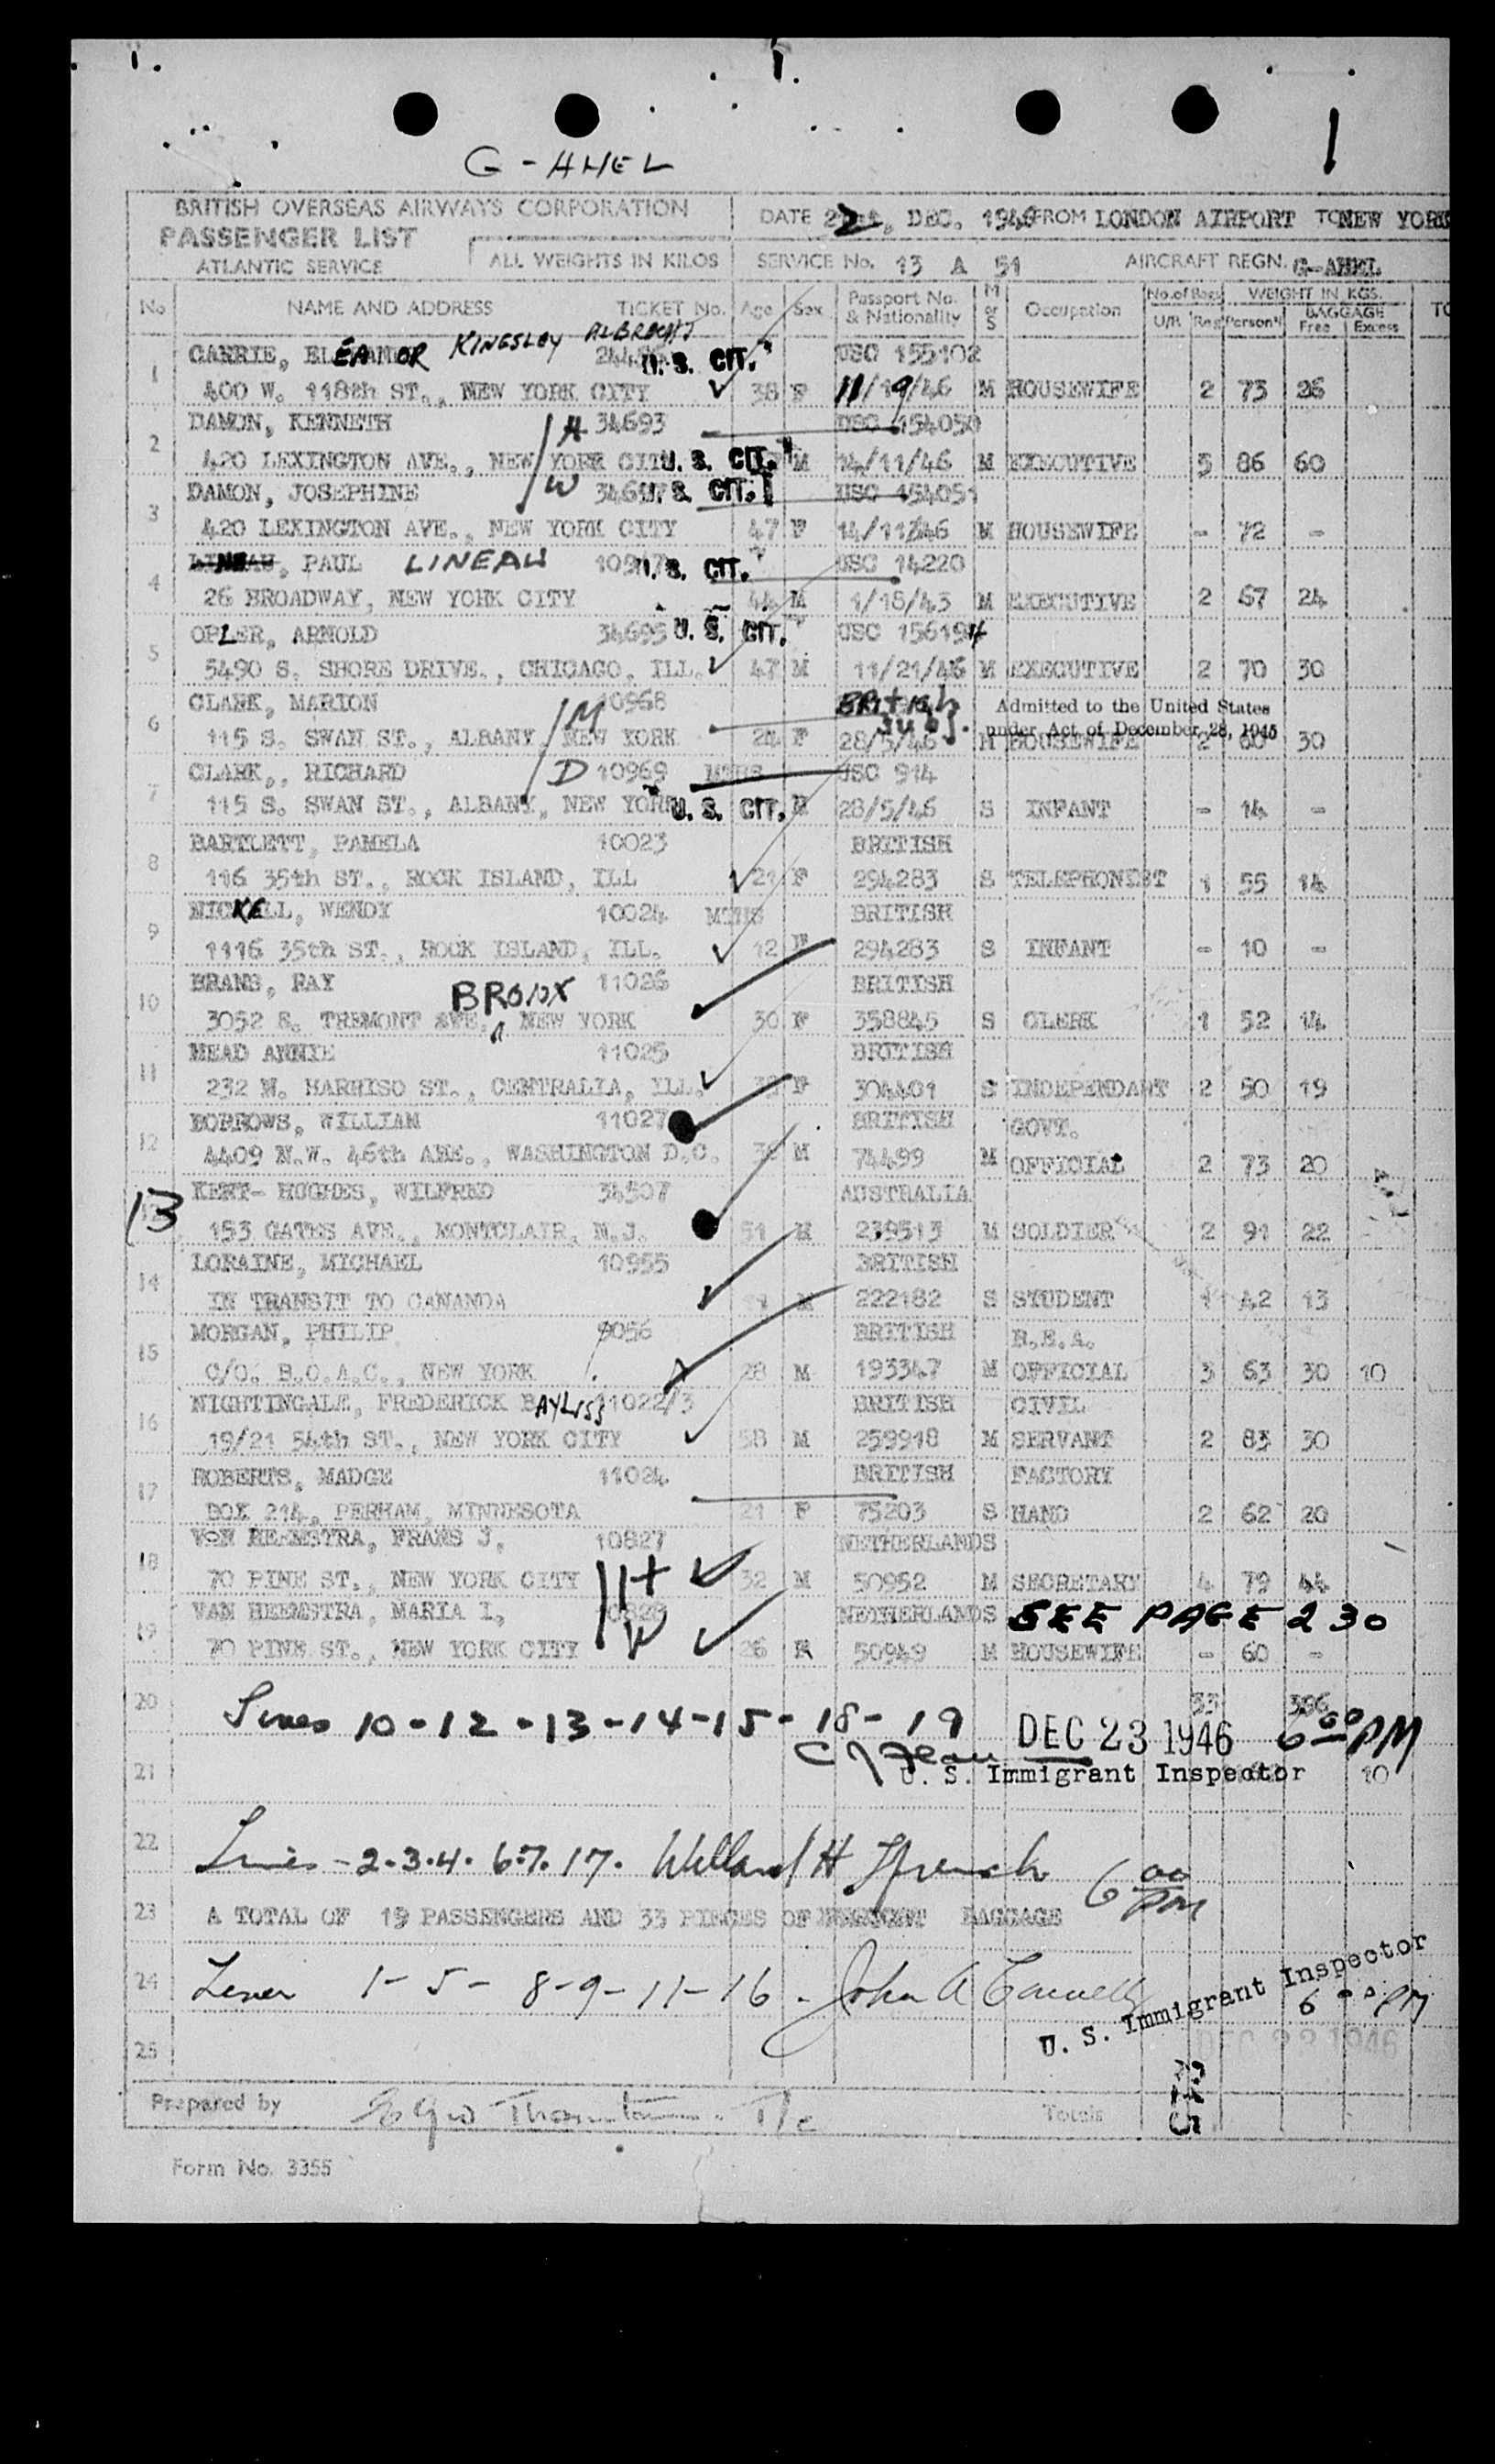 G-AHEL
1
BRITISH OVERSEAS AIRWAYS CORPORATION
PASSENGER LIST
ATLANTIC SERVICE
ALL WEIGHTS IN KILOS
DATE 22, DEC. 1946 FROM LONDON AIRPORT TO NEW YORK
SERVICE No. 13 A 51 AIRCRAFT REGN. G-AHEL
No NAME AND ADDRESS TICKET No. Age Sex Passport No. & Nationality M or S Occupation No. of Bags U/R Reg WEIGHT IN KGS. Person'l BAGGAGE Free Excess TO
KINGSLEY ALBRECHT
1 CARRIE, ELEANOR U. S. CIT. USC 155102
400 W. 118th ST., NEW YORK CITY 38 F 11/19/46 M HOUSEWIFE 2 73 26
2 DAMON, KENNETH H 34693 USC 154050
420 LEXINGTON AVE., NEW YORK CITY U. S. CIT. M 14/11/46 M EXECUTIVE 5 86 60
3 DAMON, JOSEPHINE W U. S. CIT. USC 154051
420 LEXINGTON AVE., NEW YORK CITY 47 F 14/11/46 M HOUSEWIFE - 72 -
4 LINEAU, PAUL LINEAU U. S. CIT. USC 14220
26 BROADWAY, NEW YORK CITY 44 M 1/18/43 M EXECUTIVE 2 67 24
5 OPLER, ARNOLD 34695 U. S. CIT. USC 156194
5490 S. SHORE DRIVE., CHICAGO, ILL. 47 M 11/21/46 M EXECUTIVE 2 70 30
6 CLARK, MARION M 10968 British Subj. Admitted to the United States under Act of December 28, 1945
115 S. SWAN ST., ALBANY, NEW YORK 24 F 28/5/46 M HOUSEWIFE 2 60 30
7 CLARK,, RICHARD D 10969 MTHS USC 914
115 S. SWAN ST., ALBANY, NEW YORK U. S. CIT. M 28/5/46 S INFANT - 14 -
8 BARTLETT, PAMELA 10023 BRITISH
116 35th ST., ROCK ISLAND, ILL 21 F 294283 S TELEPHONIST 1 55 14
9 NICKELL, WENDY 10024 MTHS BRITISH
1116 35th ST., ROCK ISLAND, ILL. 12 F 294283 S INFANT - 10 -
10 BRANS, RAY BRONX 11026 BRITISH
3052 E. TREMONT AVE., NEW YORK 30 F 358845 S CLERK 1 52 14
11 MEAD ANNIE 11025 BRITISH
232 N. HARRISO ST., CENTRALIA, ILL. F 304401 S INDEPENDANT 2 50 19
12 BORROWS, WILLIAM 11027 BRITISH GOVT.
4409 N.W. 46th ABE., WASHINGTON D.C. M 74499 M OFFICIAL 2 73 20
13 KENT- HUGHES, WILFRED 34507 AUSTRALIA
153 GATES AVE., MONTCLAIR, N.J. 51 M 239513 M SOLDIER 2 91 22
14 LORAINE, MICHAEL 10955 BRITISH
IN TRANSIT TO CANANDA M 222182 S STUDENT 1 42 13
15 MORGAN, PHILIP 9056 BRITISH B.E.A.
C/O. B.O.A.C., NEW YORK 28 M 193347 M OFFICIAL 3 63 30 10
16 NIGHTINGALE, FREDERICK BAYLISS 11022/3 BRITISH CIVIL
19/21 54th ST., NEW YORK CITY 58 M 259918 M SERVANT 2 83 30
17 ROBERTS, MADGE 11024 BRITISH FACTORY
BOX 214, PERHAM, MINNESOTA 21 F 75203 S HAND 2 62 20
18 VON HEEMSTRA, FRANS J, 10827 NETHERLANDS
70 PINE ST., NEW YORK CITY H 32 M 50952 M SECRETARY 4 79 44
19 VAN HEEMSTRA, MARIA I, 10828 NETHERLANDS SEE PAGE 230
70 PINE ST., NEW YORK CITY W 26 F 50949 M HOUSEWIFE - 60 -
20 33 396
Lines 10-12-13-14-15-18-19 DEC 23 1946 6 00 PM
21 U. S. Immigrant Inspector 10
22 Lines - 2-3-4. 6-7. 17. Willard H French 6 00 PM
23 A TOTAL OF 19 PASSENGERS AND 33 PIECES OF BAGGAGE
24 Lines 1-5-8-9-11-16. John A Connelly
U. S. Immigrant Inspector
6 00 PM
DEC 23 1946
25
Prepared by Totals
Form No. 3355